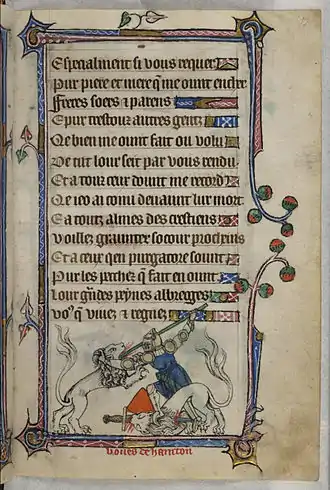 Especialment si vous requer
Pur piere et miere q̃ me ount en cher
Freres soers ⁊ parens
E pur trestouz autres gentz
Qe bien me ount fait ou volu
De tut lour seit par vous rendu
Et a touz ceux dount me record
Qe ieo ai conu deuaunt lur mort
Et a toutz almes des crestiens
Voillez graunter socour procheins
Et a ceux qen purgatore sount
Pur les pecchez q̃ fait en ount
Lour g̃ndes peynes allegges
⁊ regnez
boues de hamton